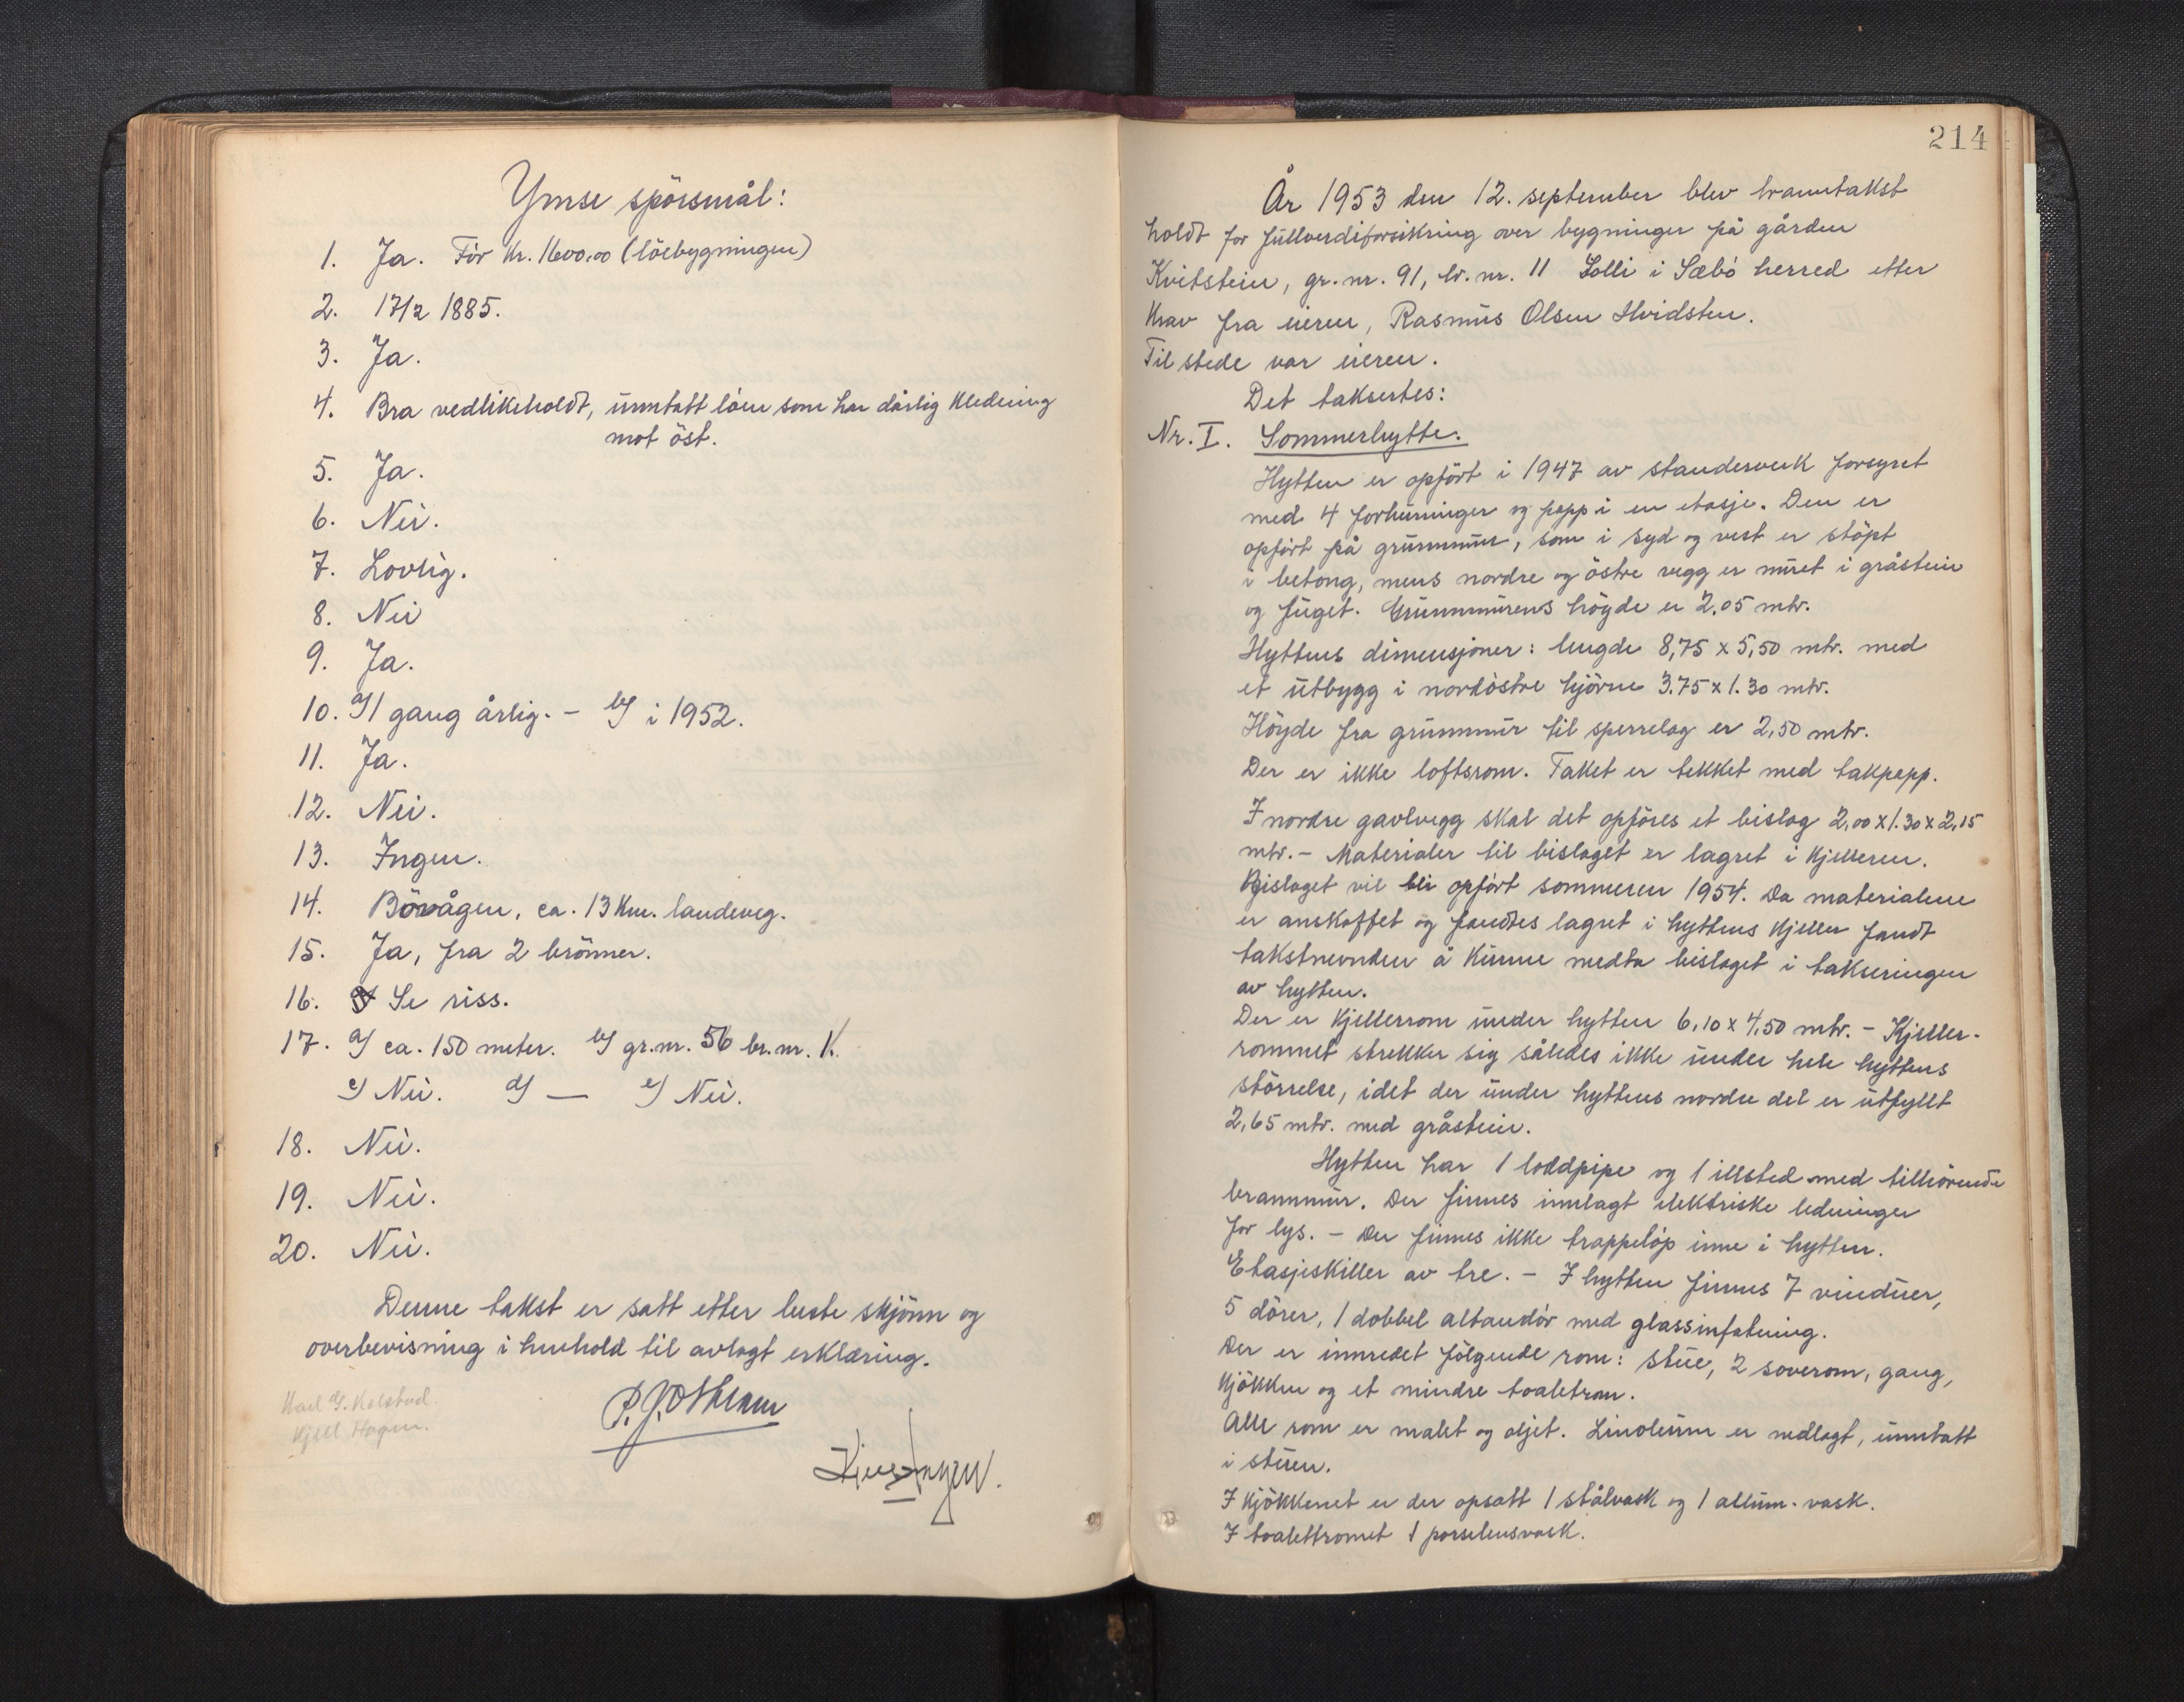 Ymse spörsmål:
1. Ja. För Kr. 1600,00 (löebygningen)
2. 17/2 1885.
3. Ja.
4. Bra vedlikeholdt, unntatt löen som har dårlig kledning
mot öst.
5. Ja.
6. Nei.
7. Lovlig.
8. Nei
9. Ja.
10. a) 1 gang årlig. – b) i 1952.
11. Ja.
12. Nei.
13. Ingen.
14. Bövågen, ca. 13 Km. landeveg.
15. Ja, fra 2 brönner.
16. Se riss.
17. a) ca. 150 meter. b) gr.nr. 56 br.nr. 1.
c) Nei. d) — e) Nei.
18. Nei.
19. Nei.
20. Nei.
Denne takst er satt etter beste skjönn og
overbevisning i henhold til avlagt erklæring.
Karl G. Kolstad.
Kjell Hagen.
214
År 1953 den 12. september blev branntakst
holdt for fullverdiforsikring over bygninger på gården
Kvitstein, gr.nr. 91, br.nr. 11 Solli i Sæbö herred etter
Krav fra eieren, Rasmus Olsen Hvidsten.
Til stede var eieren.
Det taksertes:
Nr. I. Sommerhytte.
Hytten er opfört i 1947 av standerverk forsynet
med 4 forhudninger og papp i en etasje. Den er
opfört på grunnmur, som i syd og vest er stöpt
i betong, mens nordre og östre vegg er muret i gråstein
og fuget. Grunnmurens höyde er 2,05 mtr.
Hyttens dimensjoner: lengde 8,75 x 5,50 mtr. med
et utbygg i nordöstre hjörne 3.75 x 1.30 mtr.
Höyde fra grunnmur til sperrelag er 2,50 mtr.
Der er ikke loftsrom. Taket er tekket med takpapp.
I nordre gavlvegg skal det opföres et bislag 2,00 x 1.30 x 2,15
mtr. – Materialer til bislaget er lagret i Kjelleren.
Bislaget vil bli opfört sommeren 1954. Da materialene
er anskaffet og fandtes lagret i hyttens Kjeller fandt
takstnevnden å Kunne medta bislaget i takseringen
av hytten.
Der er Kjellerrom under hytten 6,10 x 4,50 mtr. – Kjeller-
rommet strekker sig således ikke under hele hyttens
störrelse, idet der under hyttens nordre del er utfyllt
2,65 mtr. med gråstein.
Hytten har 1 loddpipe og 1 illsted med tilhörende
brannmur. Der finnes innlagt elektriske ledninger
for lys. – Der finnes ikke trappelöp inne i hytten.
Etasjeskiller av tre. – I hytten finnes 7 vinduer,
5 dörer, 1 dobbel altandör med glassinfatning.
Der er innredet fölgende rom: stue, 2 soverom, gang,
Kjökken og et mindre toaletrom.
Alle rom er malet og oljet. Linoleum er nedlagt, unntatt
i stuen.
I Kjökkenet er der opsatt 1 stålvask og 1 allum. vask.
I toalettromet 1 porselensvask.